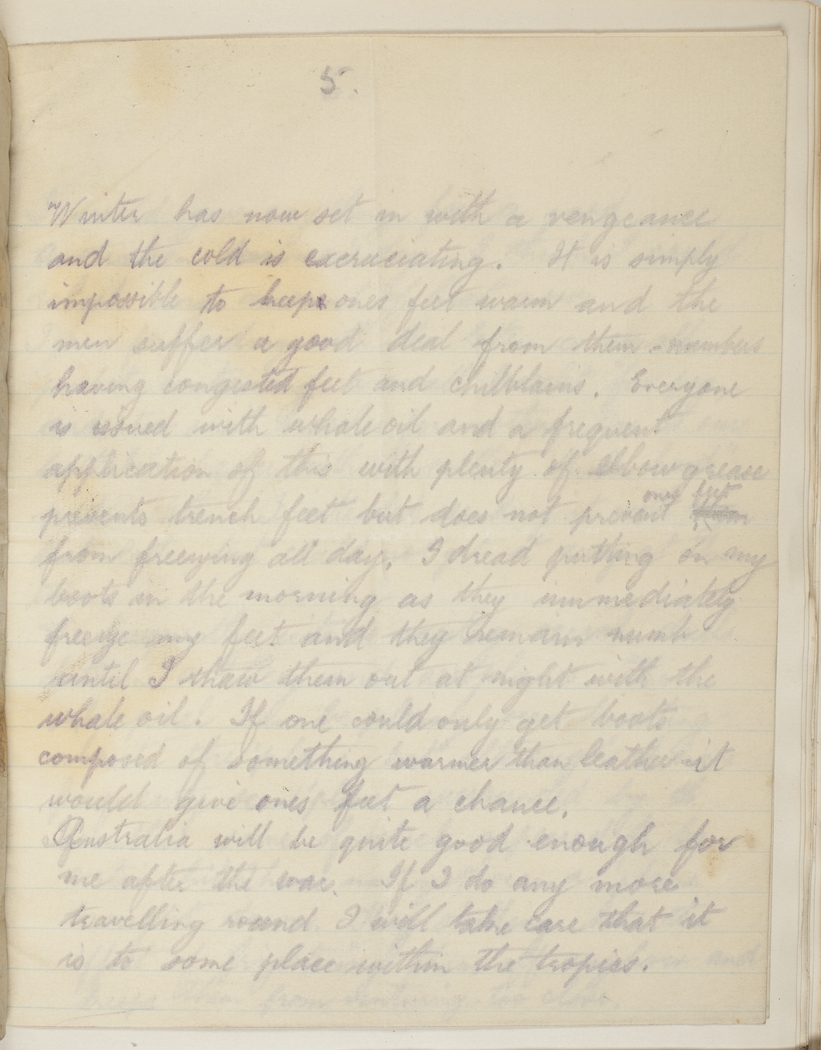 5.
Winter has now set in with a vengeance
and the cold is excruciating. It is simply
impossible to keep ones feet warm and the
men suffer a good deal from them - numbers
having congested feet and chilblains. Everyone
is issued with whale oil and a frequent
application of this with plenty of elbow grease
ones feet
prevents trench feet but does not prevent
from freezing all day. I dread putting on my
boots in the morning as they immediately
freeze my feet and they remain numb
until I thaw them out at night with the
whale oil. If one could only get boots
composed of something warmer than leather it
would give ones feet a chance.
Australia will be quite good enough for
me after the war. If I do any more
travelling round I will take care that it
is to some place within the tropics.